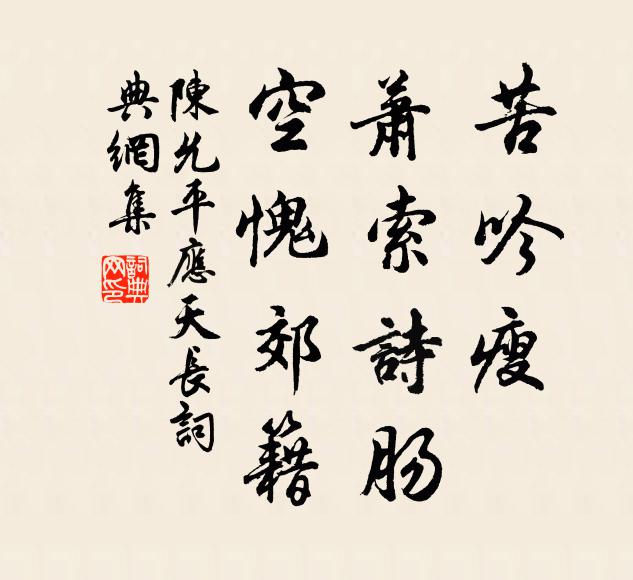 苦吟瘦
蕭索詩肠
空愧郊籍
陳允平應天長詞
典網集
詞典網印